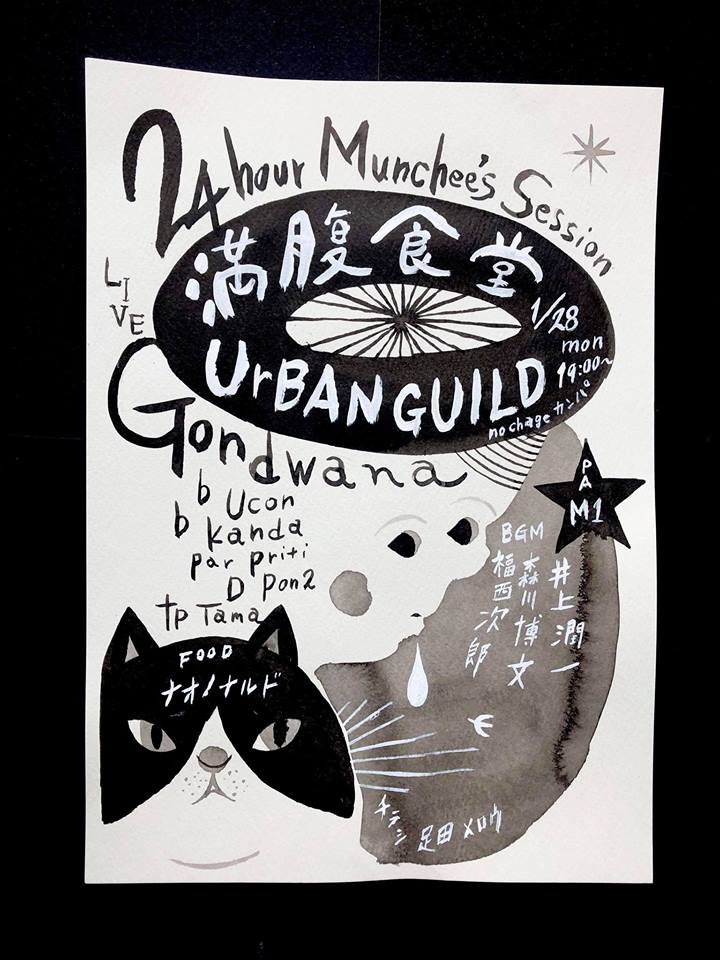 24 hour Munchee's Session
満腹食堂
1/28
mon
19:00~
URBANGUILD
no chage カンパ
LIVE
Gondwana
b Ucon
b Kanda
par priti
D Pon2
tp Tama
PA
M1
BGM
井上潤一
森川博文
福西次郎
FOOD
ナオ!ナルド
チラシ
足田メロウ